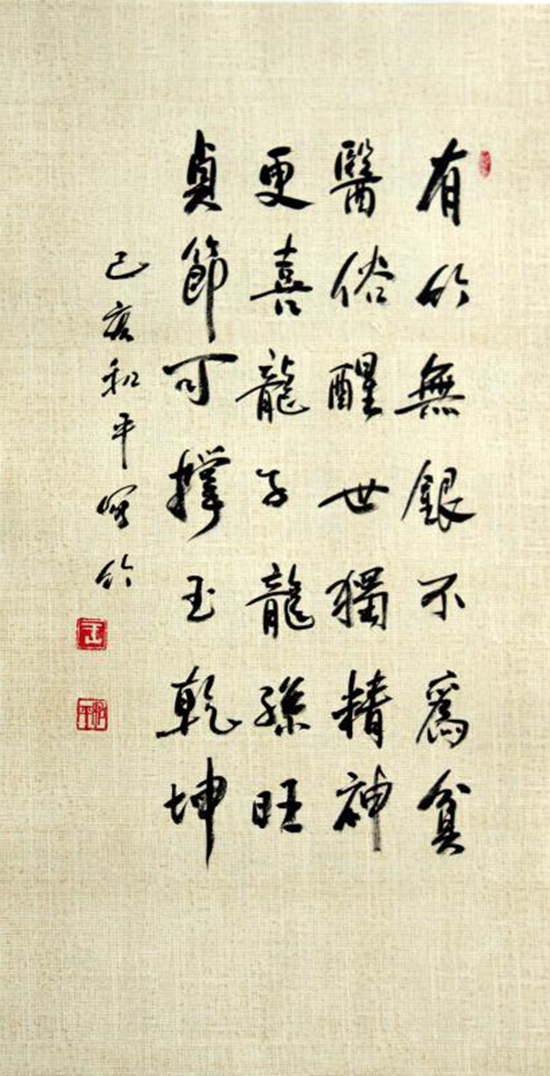 有竹無銀不爲貧
醫俗醒世獨精神
更喜龍子龍孫旺
貞節可撐玉乾坤
己亥和平寫竹